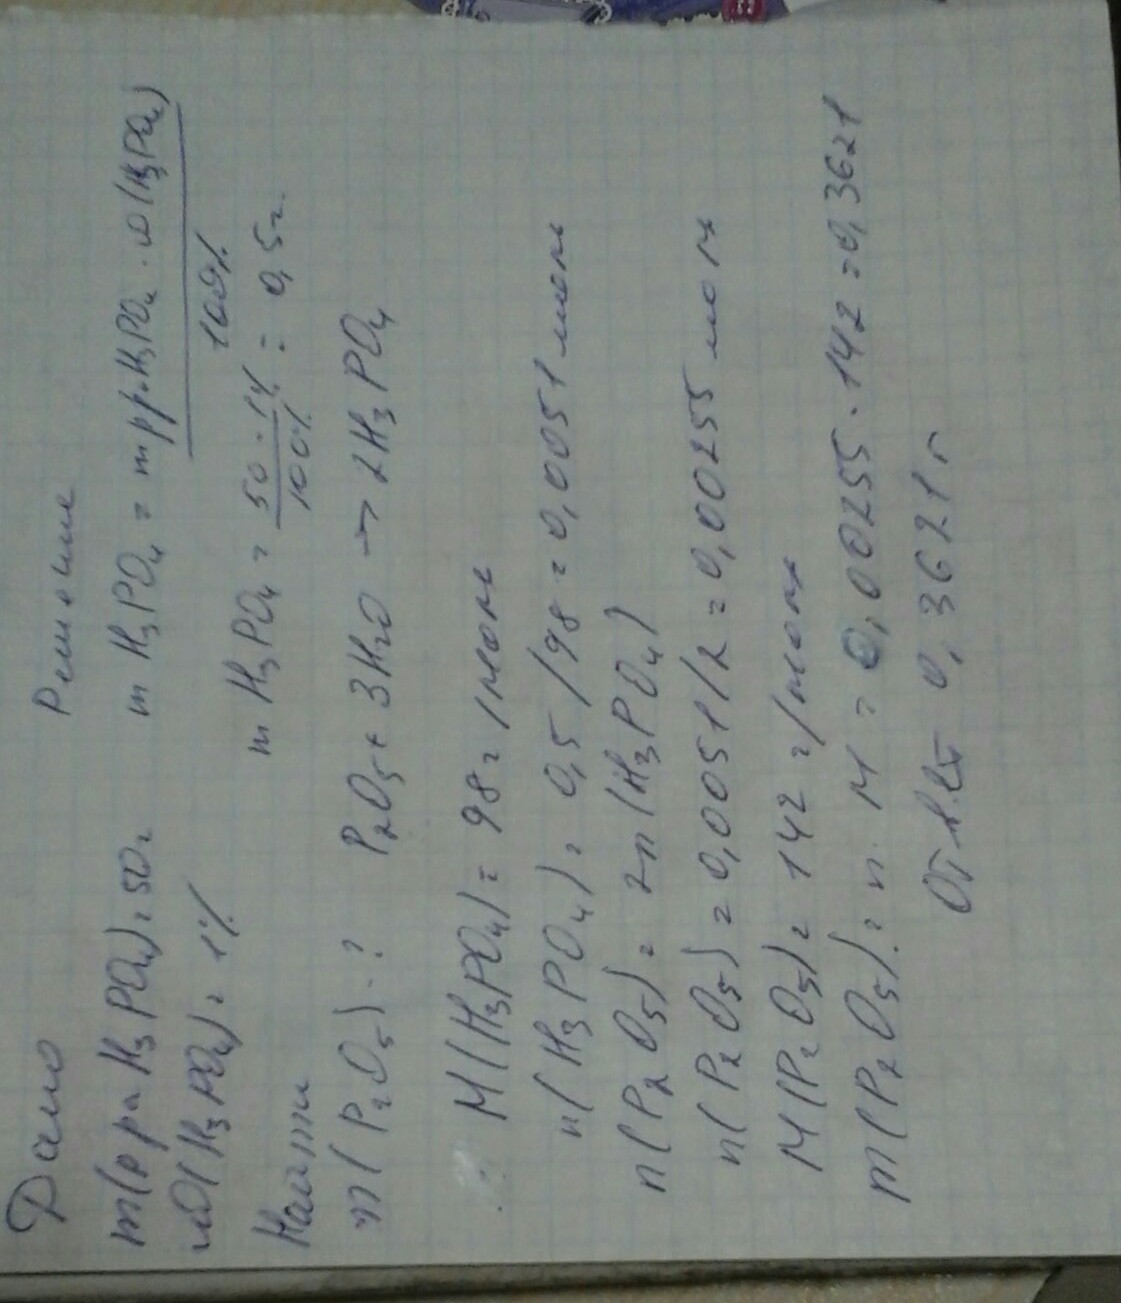 Дано
Решение
m(р ра H3PO4) = 50г
ω(H3PO4) = 1%
Найти
m(P2O5) - ?
m H3PO4 = m р р. H3PO4 · ω(H3PO4)
100%
m H3PO4 = 50 · 1% / 100% = 0,5г.
P2O5 + 3H2O → 2H3PO4
M(H3PO4) = 98 г/моль
n(H3PO4) = 0,5/98 = 0,0051 моль
n(P2O5) = 2n(H3PO4)
n(P2O5) = 0,0051/2 = 0,00255 моль
M(P2O5) = 142 г/моль
m(P2O5) = n · M = 0,00255 · 142 = 0,3621
Ответ 0,3621 г